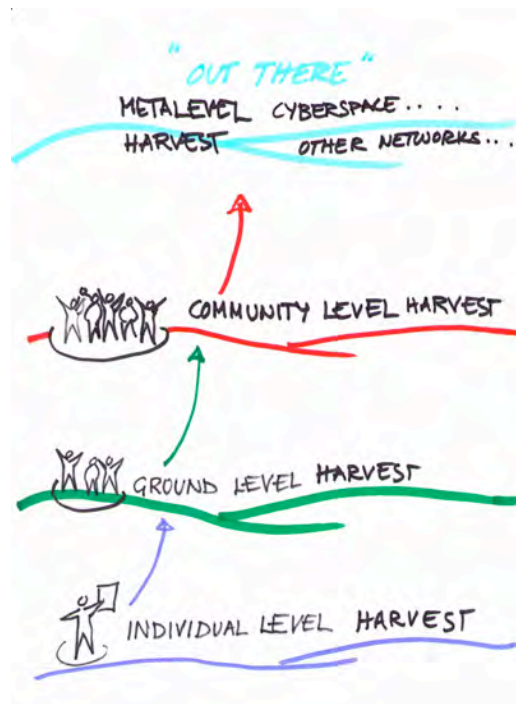 "OUT THERE"
METALEVEL CYBERSPACE....
HARVEST OTHER NETWORKS...
COMMUNITY LEVEL HARVEST
GROUND LEVEL HARVEST
INDIVIDUAL LEVEL HARVEST